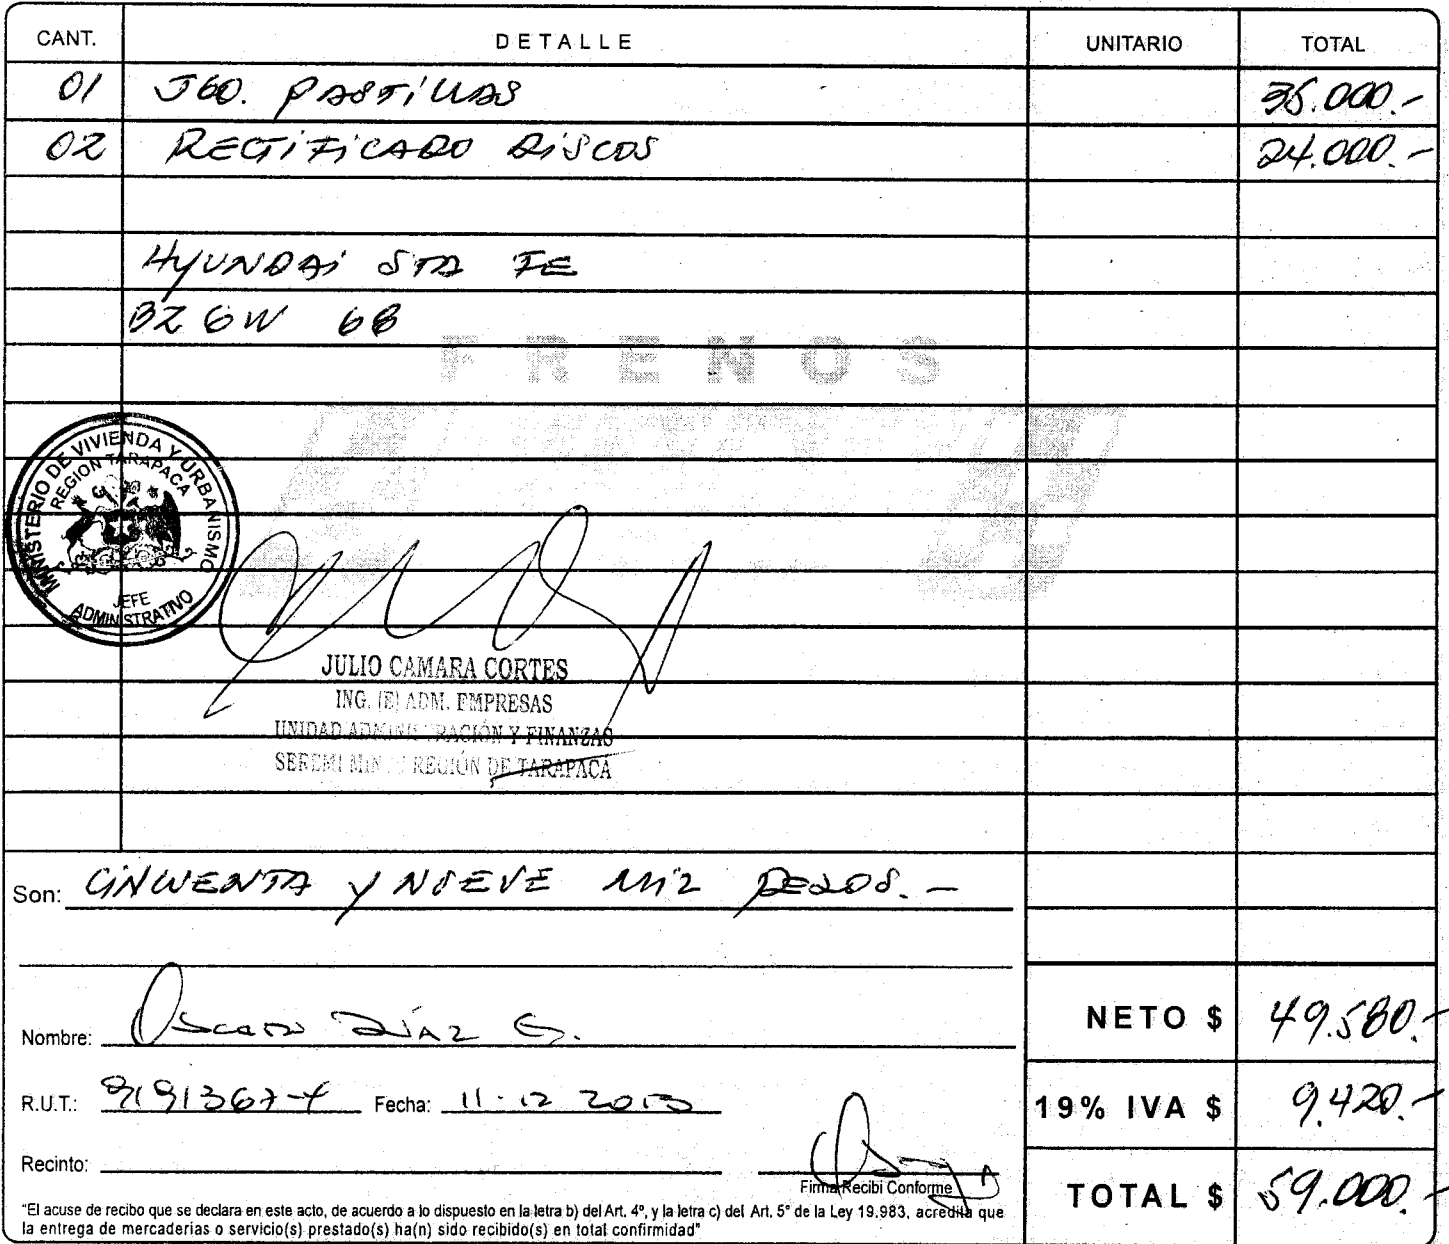 CANT. DETALLE UNITARIO TOTAL
01 JGO. PASTILLAS 35.000.-
02 RECTIFICADO DISCOS 24.000.-
HYUNDAI STA FE
BZ GW 68
FRENOS
MINISTERIO DE VIVIENDA Y URBANISMO
REGION TARAPACA
JEFE
ADMINISTRATIVO
JULIO CAMARA CORTES
ING. (E) ADM. EMPRESAS
UNIDAD ADMINISTRACIÓN Y FINANZAS
SEREMI REGIÓN DE TARAPACÁ
Son: CINCUENTA Y NUEVE MIL PESOS.-
NETO $ 49.580.-
Nombre: Oscar Díaz G.
R.U.T.: Fecha: 11-12 2013
19% IVA $ 9.420.-
Recinto:
Firma Recibi Conforme
TOTAL $ 59.000.-
"El acuse de recibo que se declara en este acto, de acuerdo a lo dispuesto en la letra b) del Art. 4º, y la letra c) del Art. 5° de la Ley 19.983, acredita que
la entrega de mercaderias o servicio(s) prestado(s) ha(n) sido recibido(s) en total confirmidad"